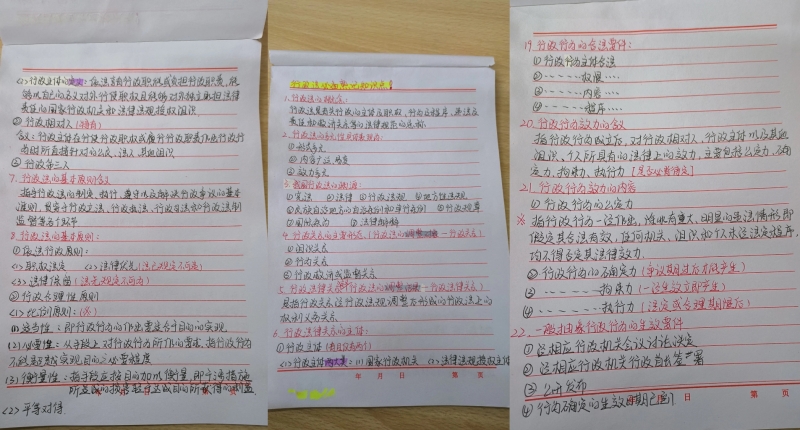 <2>行政主体的含义:依法享有行政职权或负担行政职责,能
够以自己的名义对外行使职权且能够对外独立承担法律
责任的国家行政机关和法律法规授权组织
② 行政相对人
含义:行政主体在行使行政职权或履行行政职责作出行政行
为时所直接针对的公民、法人、其他组织
③ 行政第三人
7. 行政法的基本原则含义
指导行政法的制定、执行、遵守以及解决行政争议的基本
准则,贯穿于行政立法、行政执法、行政司法和行政法制
监督等各个环节
8. 行政法的基本原则:
① 依法行政原则:
<1> 职权法定 <2> 法律优先(法无规定不可为)
<3> 法律保留(法无规定不可为)
② 行政合理性原则
<1> 比例原则:
(1) 适当性:即行政行为的作出要适合于目的的实现
(2) 必要性:从手段上对行政行为所作的要求,指行政行为
不能超越实现目的之必要程度
(3) 衡量性:指手段应按目的加以衡量,即干涉措施
所造成的损害轻于达成目的所获得的利益
<2> 平等对待
行政法以如果的知识点
1. 行政法的概念:
2. 行政法的
① 形式多元
② 内容广泛易变
③ 效力多元
3. 我国行政法的渊源:
① 宪法 ② 法律 ③ 行政法规 ④ 地方性法规
⑤ 民族自治地方的自治条例和单行条例 ⑥ 行政规章
⑦ 国际条约 ⑧ 法律解释
4. 行政关系的主要形态(行政法的调整对象—行政关系)
① 组织关系
② 行为关系
③ 行政救济或监督关系
5. 行政法律关系(行政法的调整—行政法律关系)
是指行政关系经行政法规调整后形成的行政法上的
权利义务关系
6. 行政法律关系的主体:
① 行政主体
<1> 行政主体的种类:(1) 国家行政机关 (2) 法律法规授权主体
年 月 日 第 页
19. 行政行为的合法要件:
① 行政行为主体合法
② - - - - - 权限 - - -
③ - - - - - 内容 - - -
④ - - - - - 程序 - - -
20. 行政行为效力的含义
指行政行为成立后,对行政相对人、行政主体以及其他
组织、个人所具有的法律上的效力,主要包括公定力、确
定力、拘束力、执行力
21. 行政行为效力的内容
① 行政行为的公定力
※ 指行政行为一经作出,除非有重大、明显的违法情形即
假定其合法有效,任何机关、组织和个人未经法定程序,
均不得否定其法律效力
② 行政行为的确定力(争议期过后才产生)
③ - - - - - 拘束力(一经生效立即产生)
④ - - - - - 执行力(法定或合理期限后)
22. 一般抽象行政行为的生效要件
① 经相应行政机关会议讨论决定
② 经相应行政机关行政首长签署
③ 公开发布
④ 行为确定的生效日期已到
日 第 页